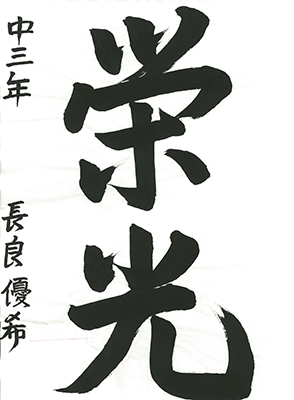 栄光
中三年 長良優希